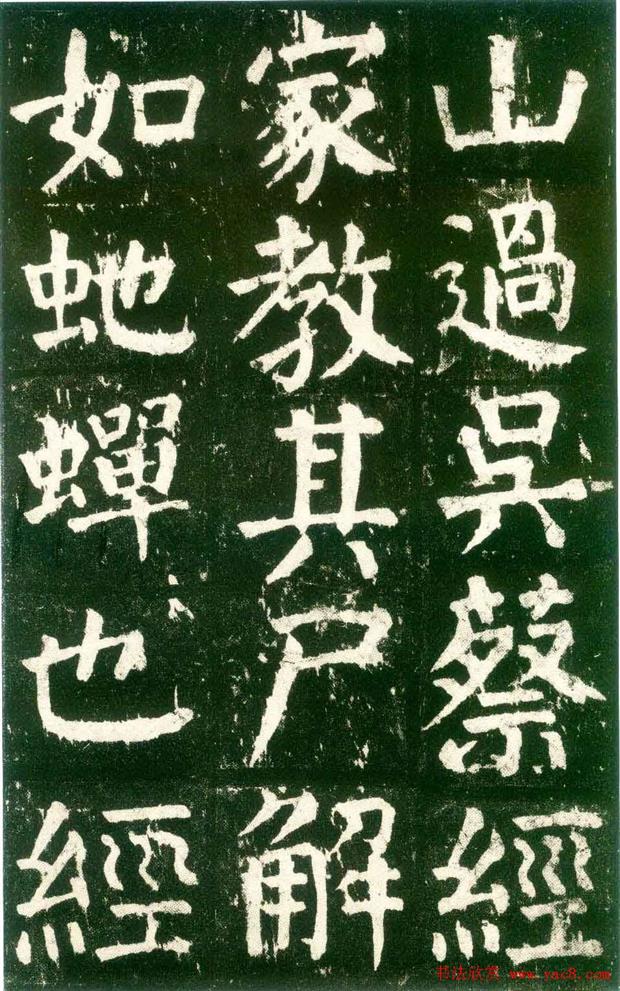 山過吳蔡經
家教其尸解
如虵蟬也經
书法欣赏 www.yac8.com